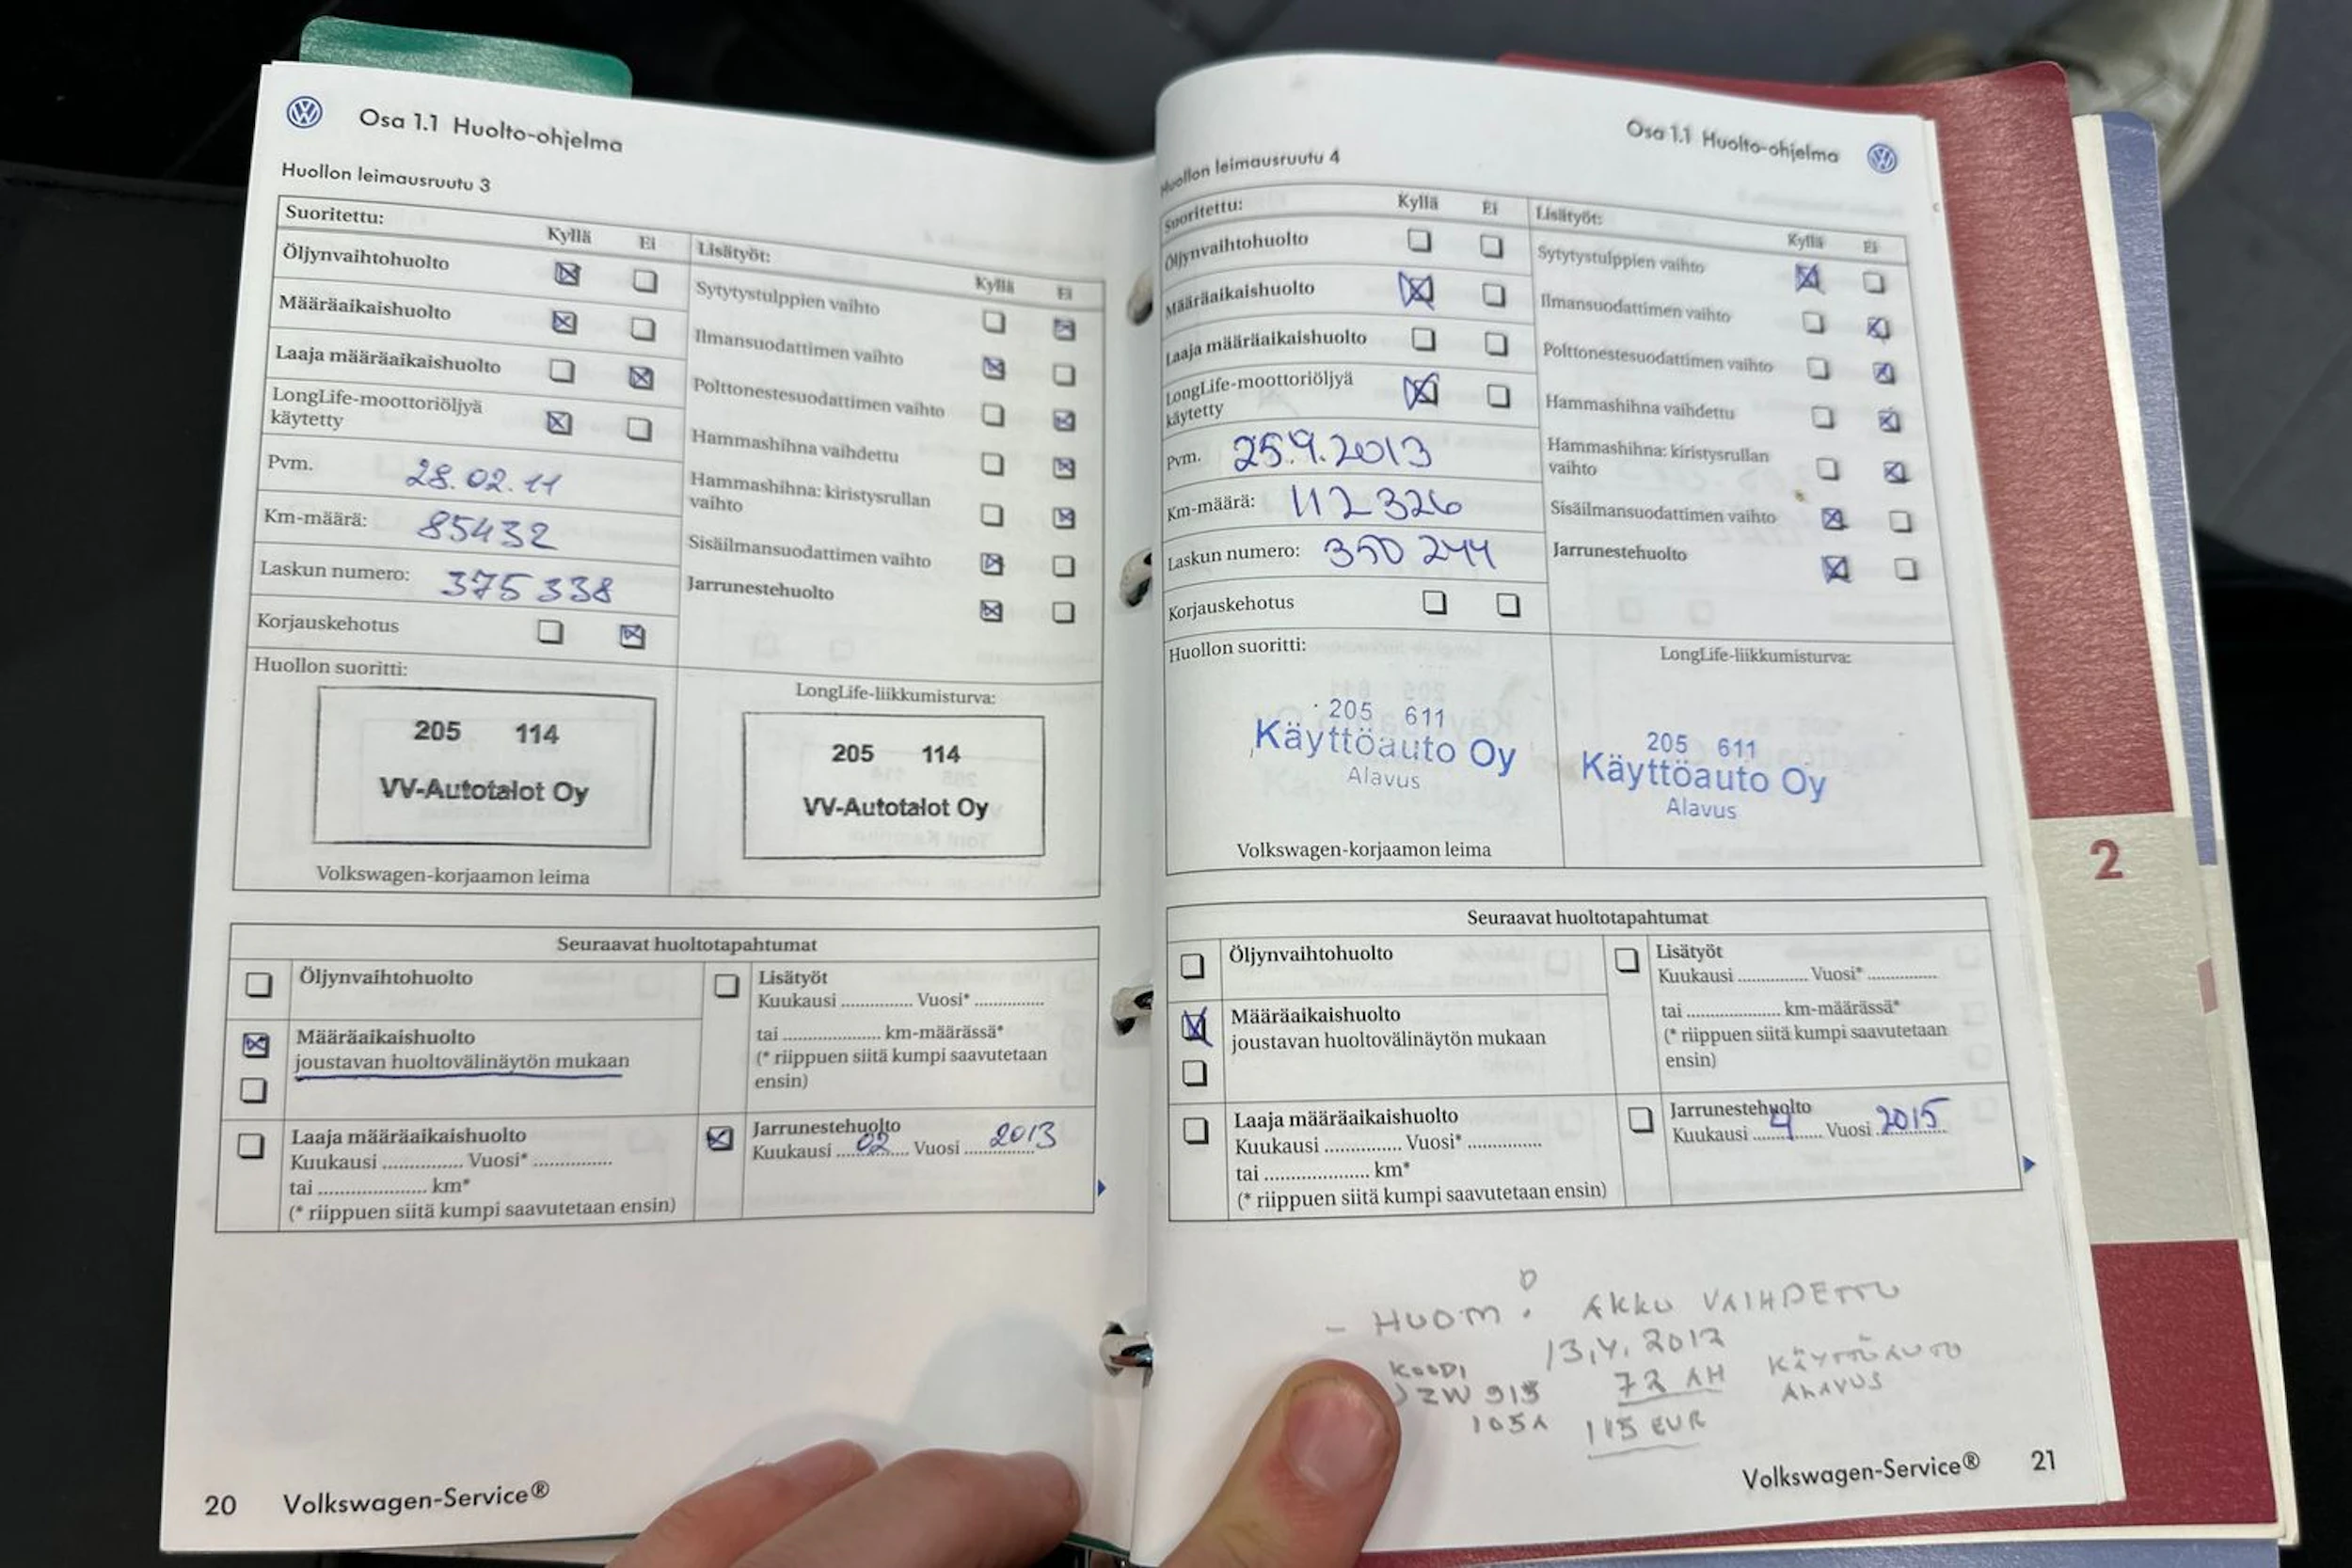 Osa 1.1 Huolto-ohjelma
Huollon leimausruutu 3
Suoritettu:
Kyllä Ei
Öljynvaihtohuolto
Määräaikaishuolto
Laaja määräaikaishuolto
LongLife-moottoriöljyä
käytetty
Pvm. 28.02.11
Km-määrä: 85432
Laskun numero: 375 338
Korjauskehotus
Lisätyöt:
Kyllä Ei
Sytytystulppien vaihto
Ilmansuodattimen vaihto
Polttonestesuodattimen vaihto
Hammashihna vaihdettu
Hammashihna: kiristysrullan
vaihto
Sisäilmansuodattimen vaihto
Jarrunestehuolto
Huollon suoritti:
205 114
VV-Autotalot Oy
Volkswagen-korjaamon leima
LongLife-liikkumisturva:
205 114
VV-Autotalot Oy
Seuraavat huoltotapahtumat
Öljynvaihtohuolto
Määräaikaishuolto
joustavan huoltovälinäytön mukaan
Laaja määräaikaishuolto
Kuukausi .............. Vuosi* ..............
tai .................... km*
(* riippuen siitä kumpi saavutetaan ensin)
Lisätyöt
Kuukausi ............. Vuosi* .............
tai .................... km-määrässä*
(* riippuen siitä kumpi saavutetaan
ensin)
Jarrunestehuolto
Kuukausi 02 Vuosi 2013
20 Volkswagen-Service®
Osa 1.1 Huolto-ohjelma
Huollon leimausruutu 4
Suoritettu:
Kyllä Ei
Öljynvaihtohuolto
Määräaikaishuolto
Laaja määräaikaishuolto
LongLife-moottoriöljyä
käytetty
Pvm. 25.9.2013
Km-määrä: 112 326
Laskun numero: 350 244
Korjauskehotus
Lisätyöt:
Kyllä Ei
Sytytystulppien vaihto
Ilmansuodattimen vaihto
Polttonestesuodattimen vaihto
Hammashihna vaihdettu
Hammashihna: kiristysrullan
vaihto
Sisäilmansuodattimen vaihto
Jarrunestehuolto
Huollon suoritti:
205 611
Käyttöauto Oy
Alavus
Volkswagen-korjaamon leima
LongLife-liikkumisturva:
205 611
Käyttöauto Oy
Alavus
Seuraavat huoltotapahtumat
Öljynvaihtohuolto
Määräaikaishuolto
joustavan huoltovälinäytön mukaan
Laaja määräaikaishuolto
Kuukausi .............. Vuosi* ..............
tai .................... km*
(* riippuen siitä kumpi saavutetaan ensin)
Lisätyöt
Kuukausi ............. Vuosi* .............
tai .................... km-määrässä*
(* riippuen siitä kumpi saavutetaan
ensin)
Jarrunestehuolto
Kuukausi 4 Vuosi 2015
- HUOM! AKKU VAIHDETTU
13.4.2012
KOODI 72 AH KÄYTTÖAUTO
JZW 915 ALAVUS
105A 115 EUR
Volkswagen-Service® 21
2